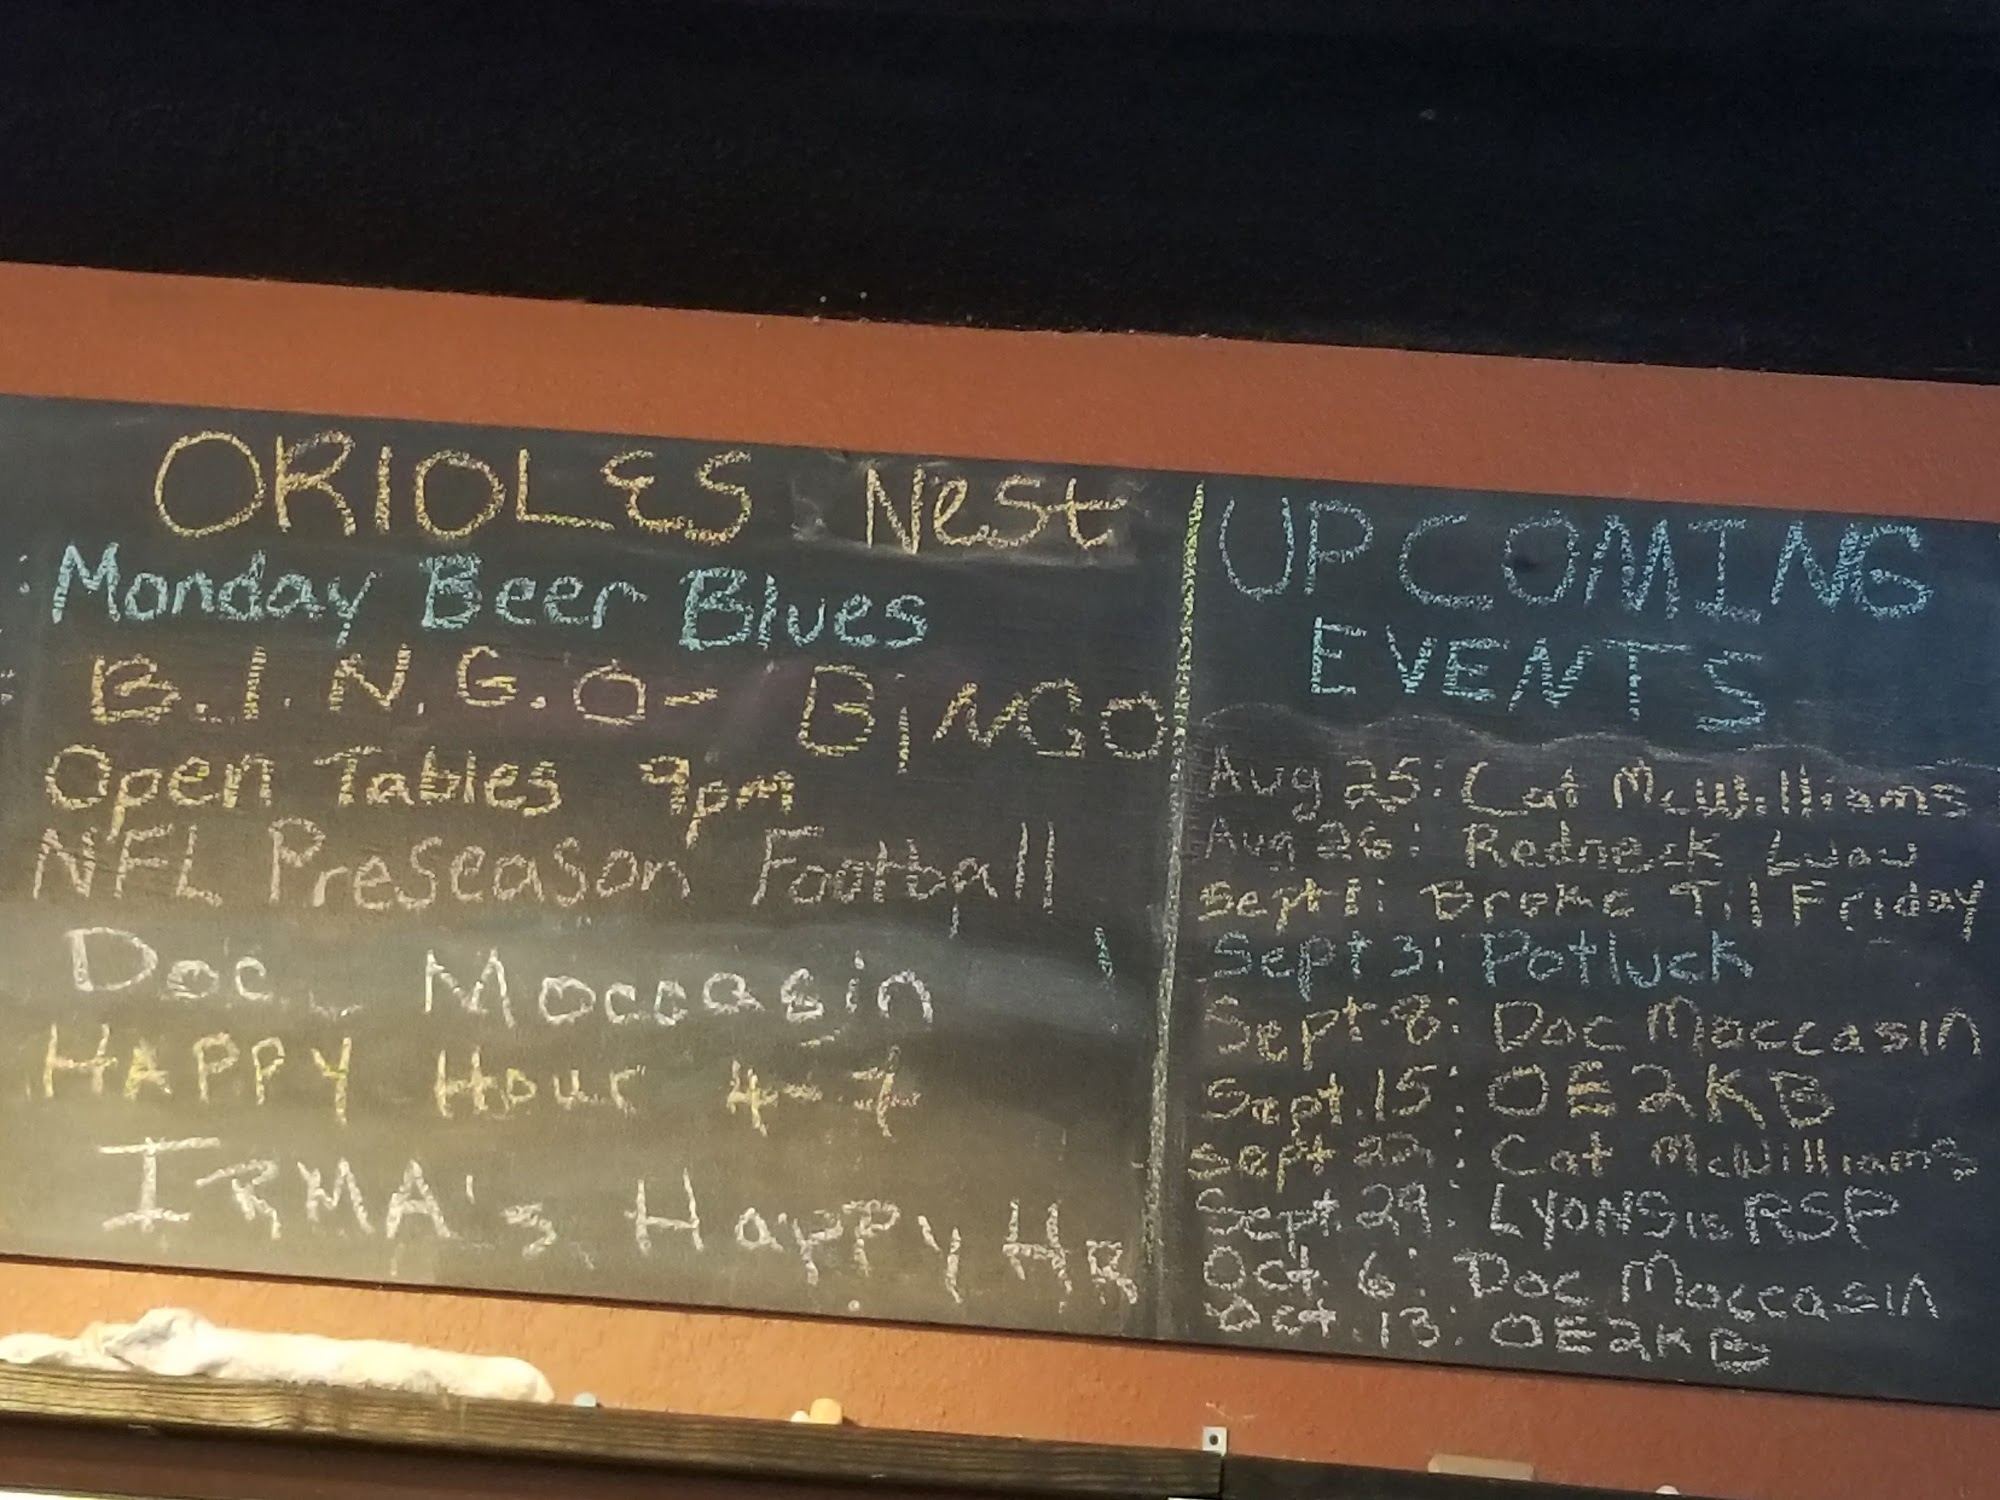 ORIOLES Nest
Monday Beer Blues
B.I.N.G.O - BiNGO
Open Tables 9pm
NFL Preseason Football
Doc Moccasin
HAPPY Hour 4-7
IRMA's HappY HR
UPCOMING
EVENTS
Aug 25: Cat McWilliams
Aug 26: Redneck Luau
Sept 1: Broke Til Friday
Sept 3: Potluck
Sept. 8: Doc Moccasin
Sept. 15: OE2KB
Sept 22: Cat McWilliams
Sept. 29: LYONS is RSP
Oct 6: Doc Moccasin
Oct. 13: OE2KB